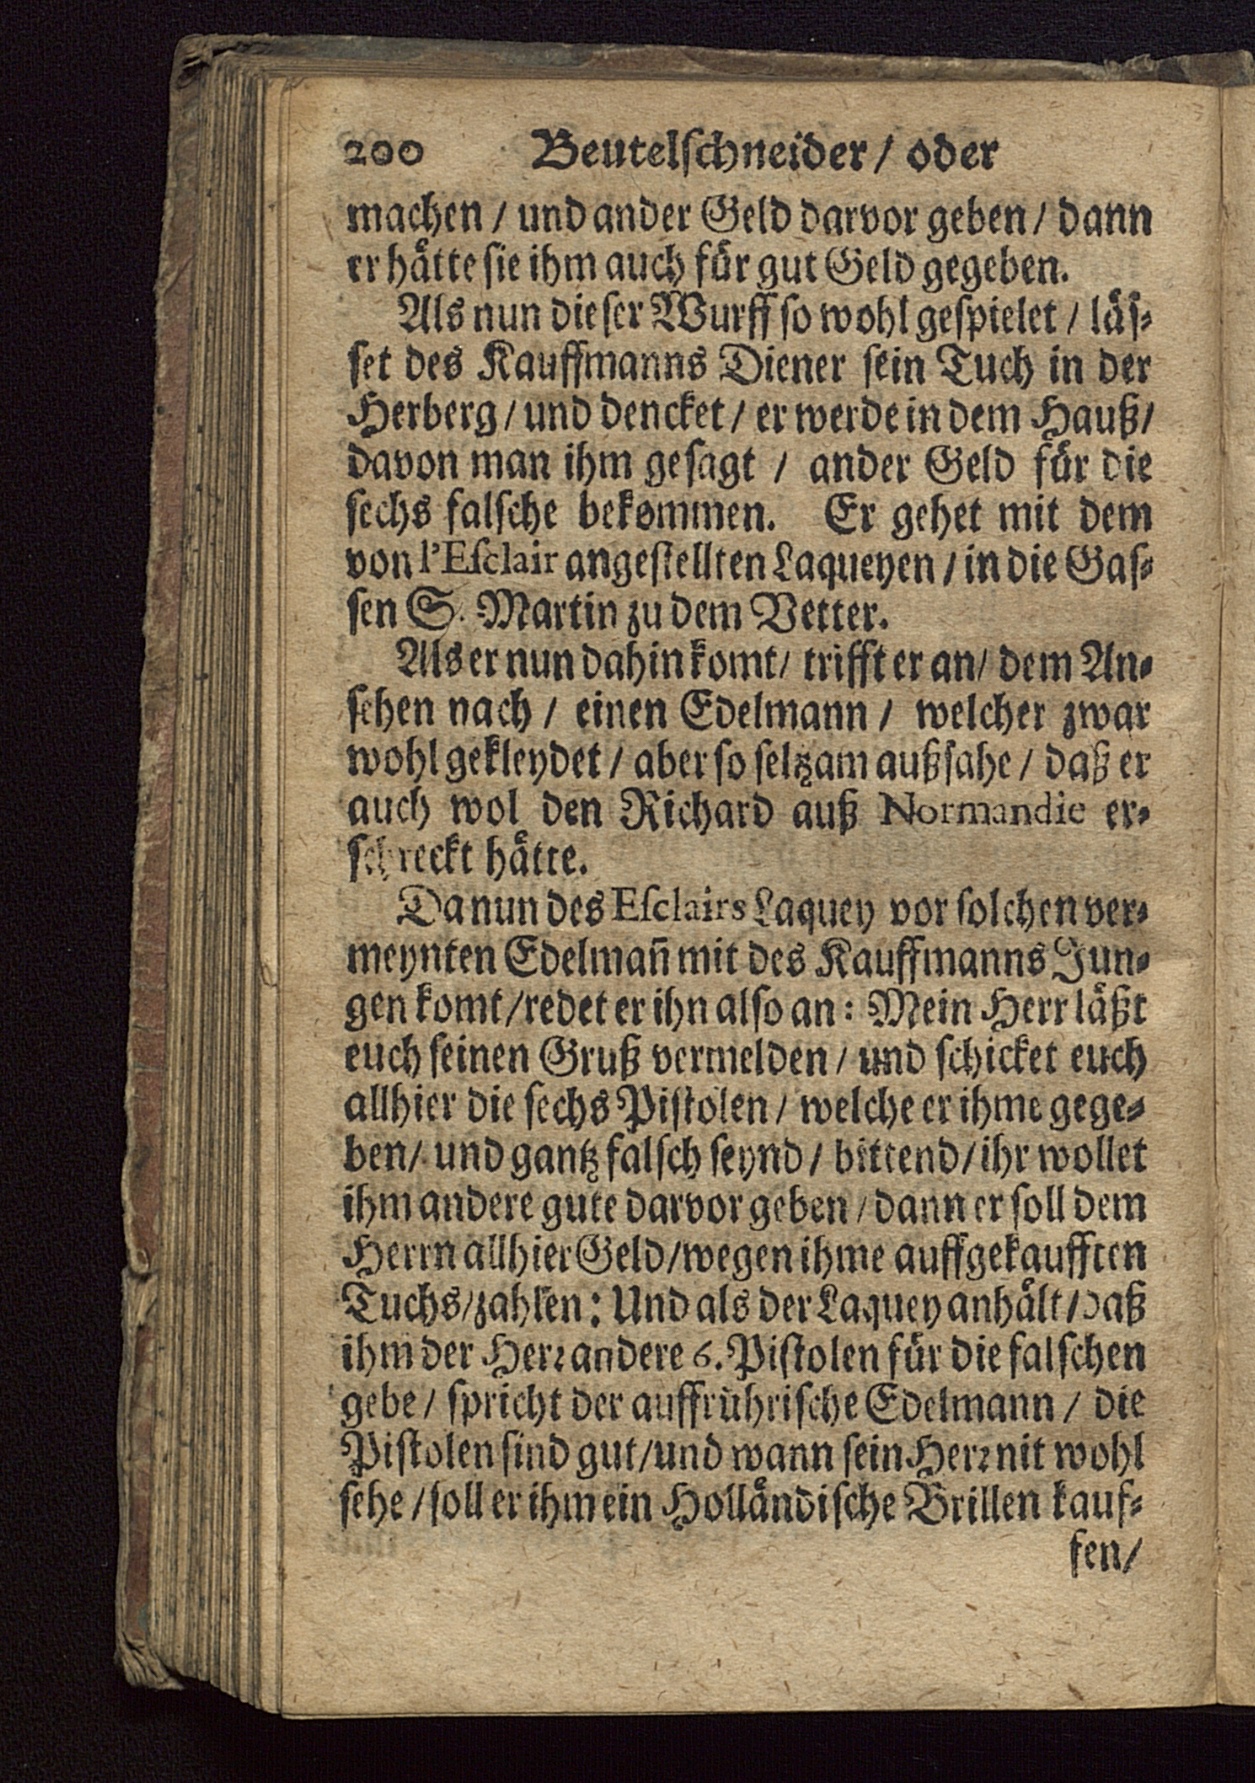 200 Beutelſchneider / oder
machen / und ander Geld darvor geben / dann
er hätte ſie ihm auch für gut Geld gegeben.
Als nun dieſer Wurff ſo wohl geſpielet / läſ⸗
ſet des Kauffmanns Diener ſein Tuch in der
Herberg / und dencket / er werde in dem Hauß /
davon man ihm geſagt / ander Geld für die
ſechs falſche bekommen. Er gehet mit dem
von l'Eſclair angeſtellten Laqueyen / in die Gaſ⸗
ſen S. Martin zu dem Vetter.
Als er nun dahin komt / trifft er an / dem An⸗
ſehen nach / einen Edelmann / welcher zwar
wohl gekleydet / aber ſo ſeltzam außſahe / daß er
auch wol den Richard auß Normandie er⸗
ſchreckt hätte.
Da nun des Eſclairs Laquey vor ſolchen ver⸗
meynten Edelmañ mit des Kauffmanns Jun⸗
gen komt / redet er ihn alſo an: Mein Herr läßt
euch ſeinen Gruß vermelden / und ſchicket euch
allhier die ſechs Piſtolen / welche er ihme gege⸗
ben / und gantz falſch ſeynd / bittend / ihr wollet
ihm andere gute darvor geben / dann er ſoll dem
Herrn allhier Geld / wegen ihme auffgekaufften
Tuchs / zahlen: Und als der Laquey anhält / daß
ihm der Herꝛ andere 6. Piſtolen für die falſchen
gebe / ſpricht der auffrührische Edelmann / die
Piſtolen ſind gut / und wann ſein Herꝛ nit wohl
ſehe / ſoll er ihm ein Holländiſche Brillen kauf⸗
fen /